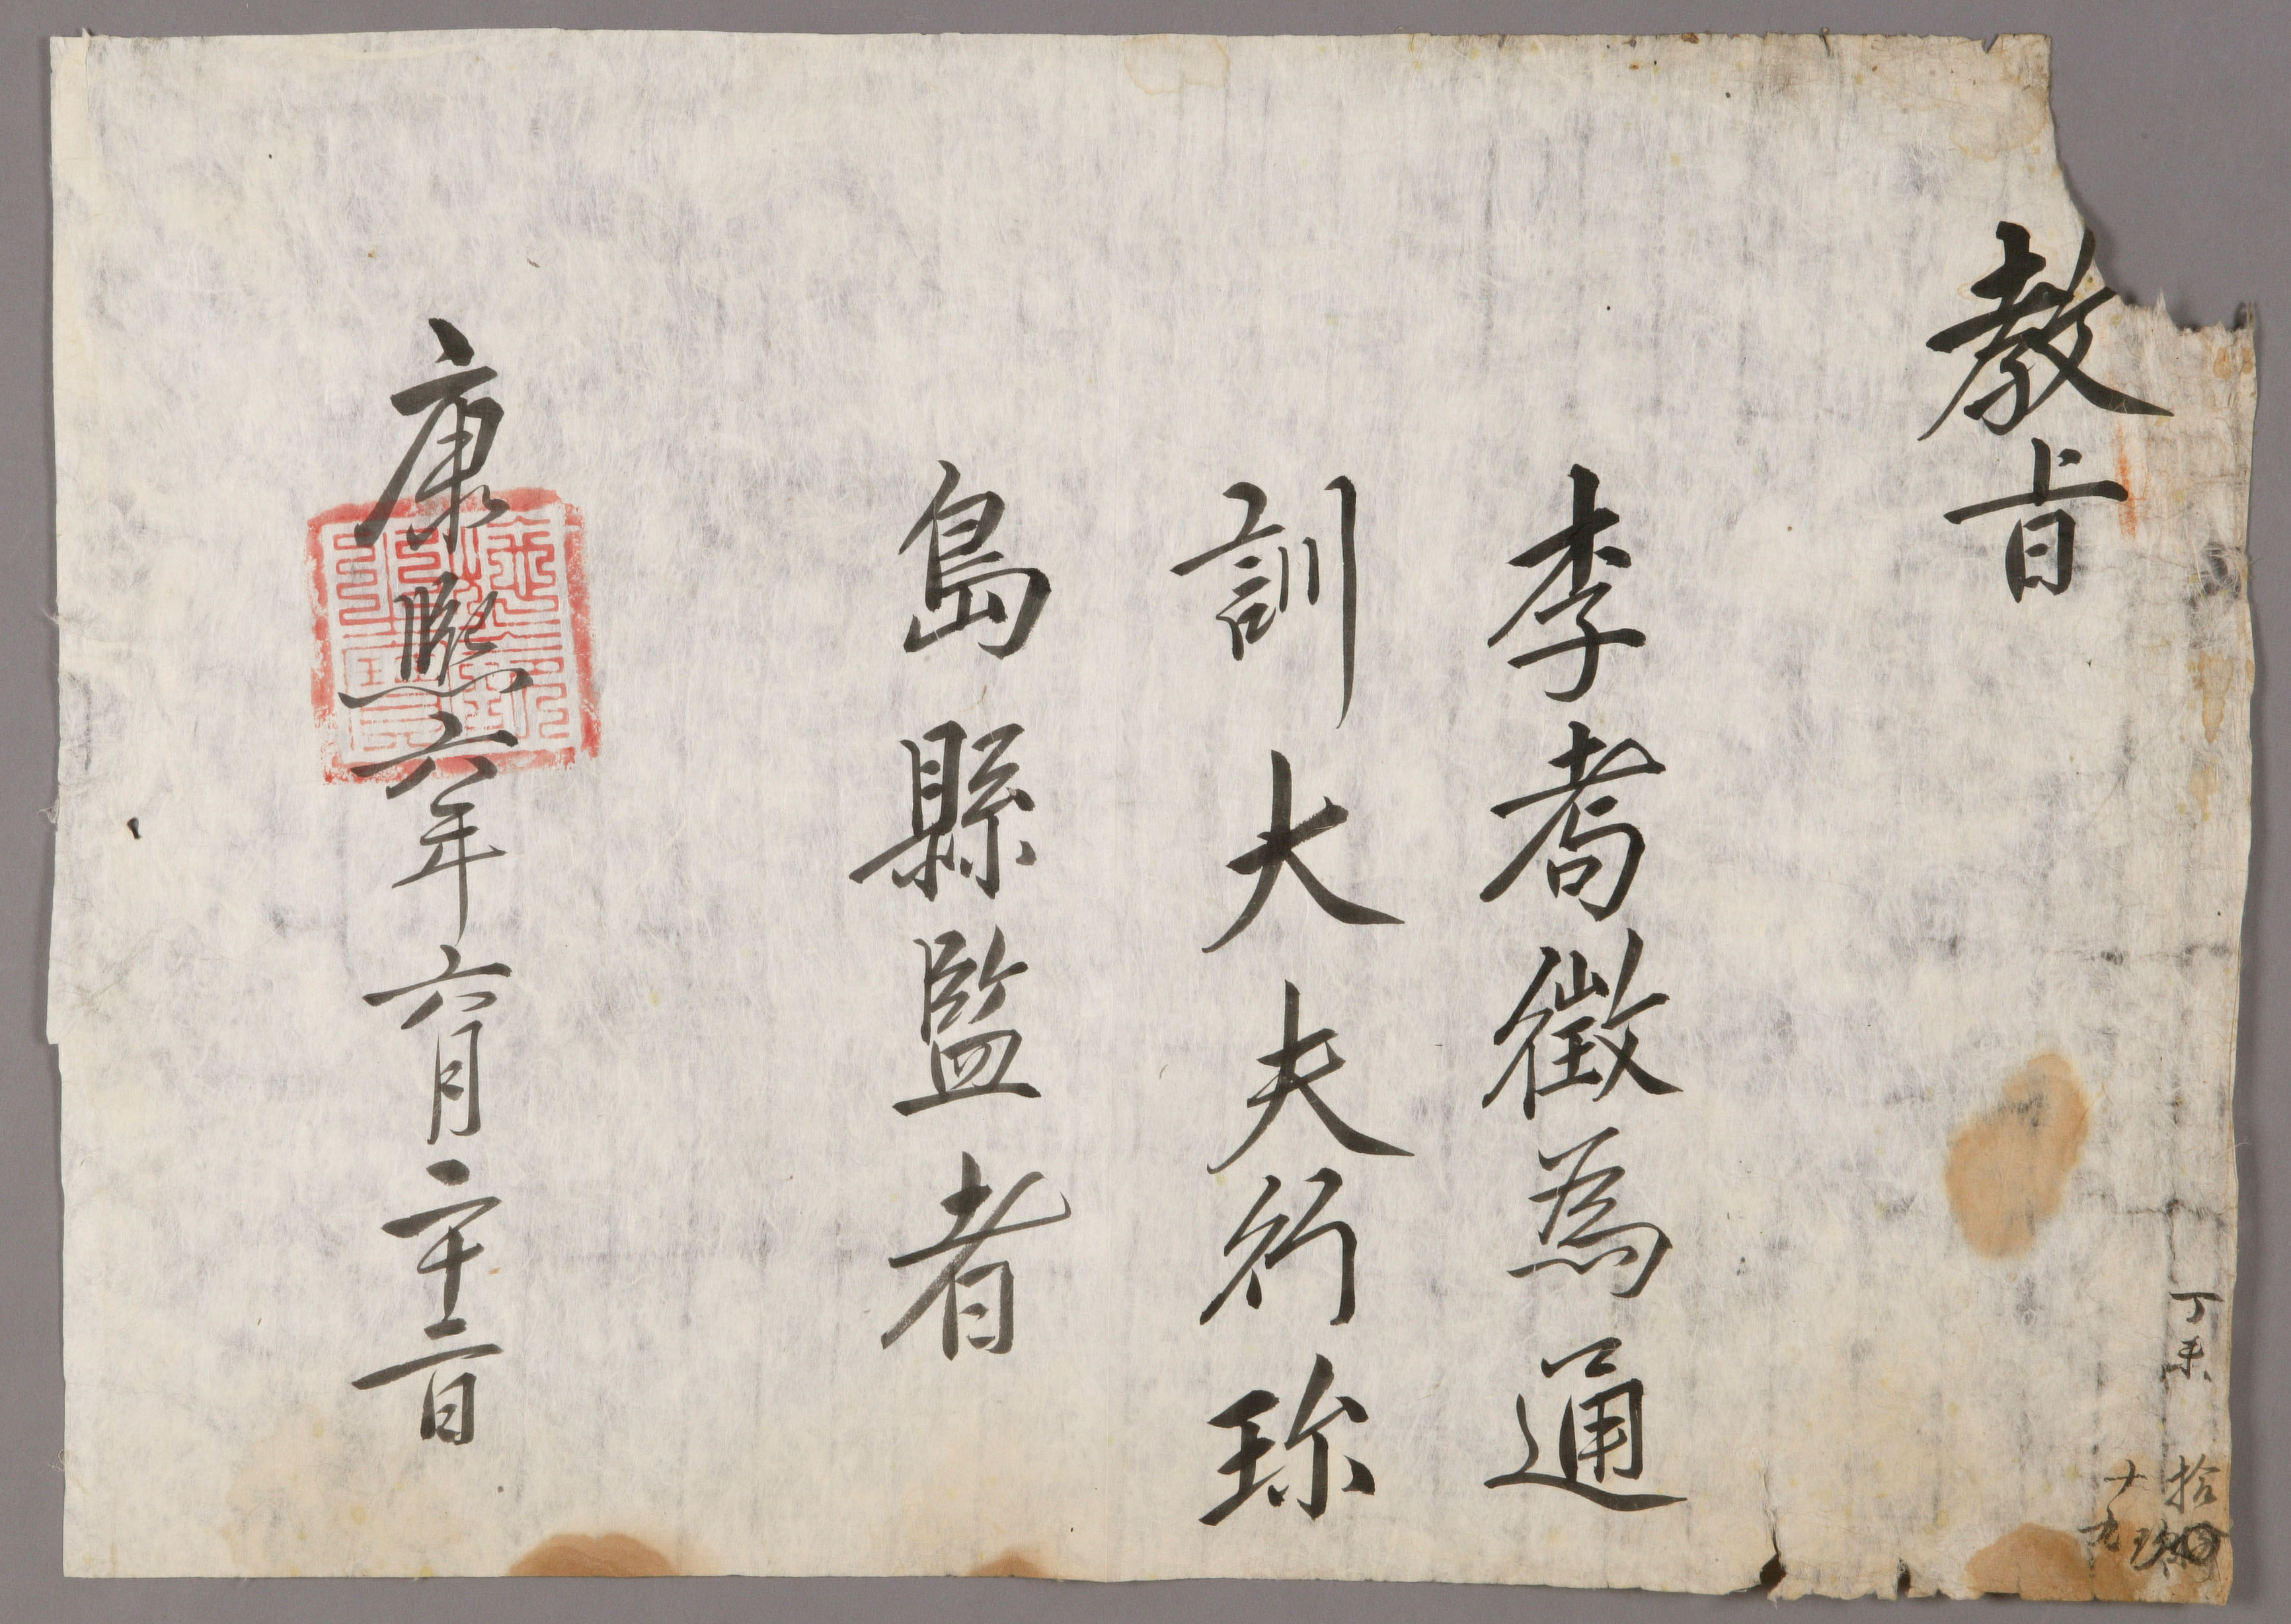 教旨
李耉徵為通
訓大夫行珎
島縣監者
康熙六年六月二十二日
丁未
拾
十九